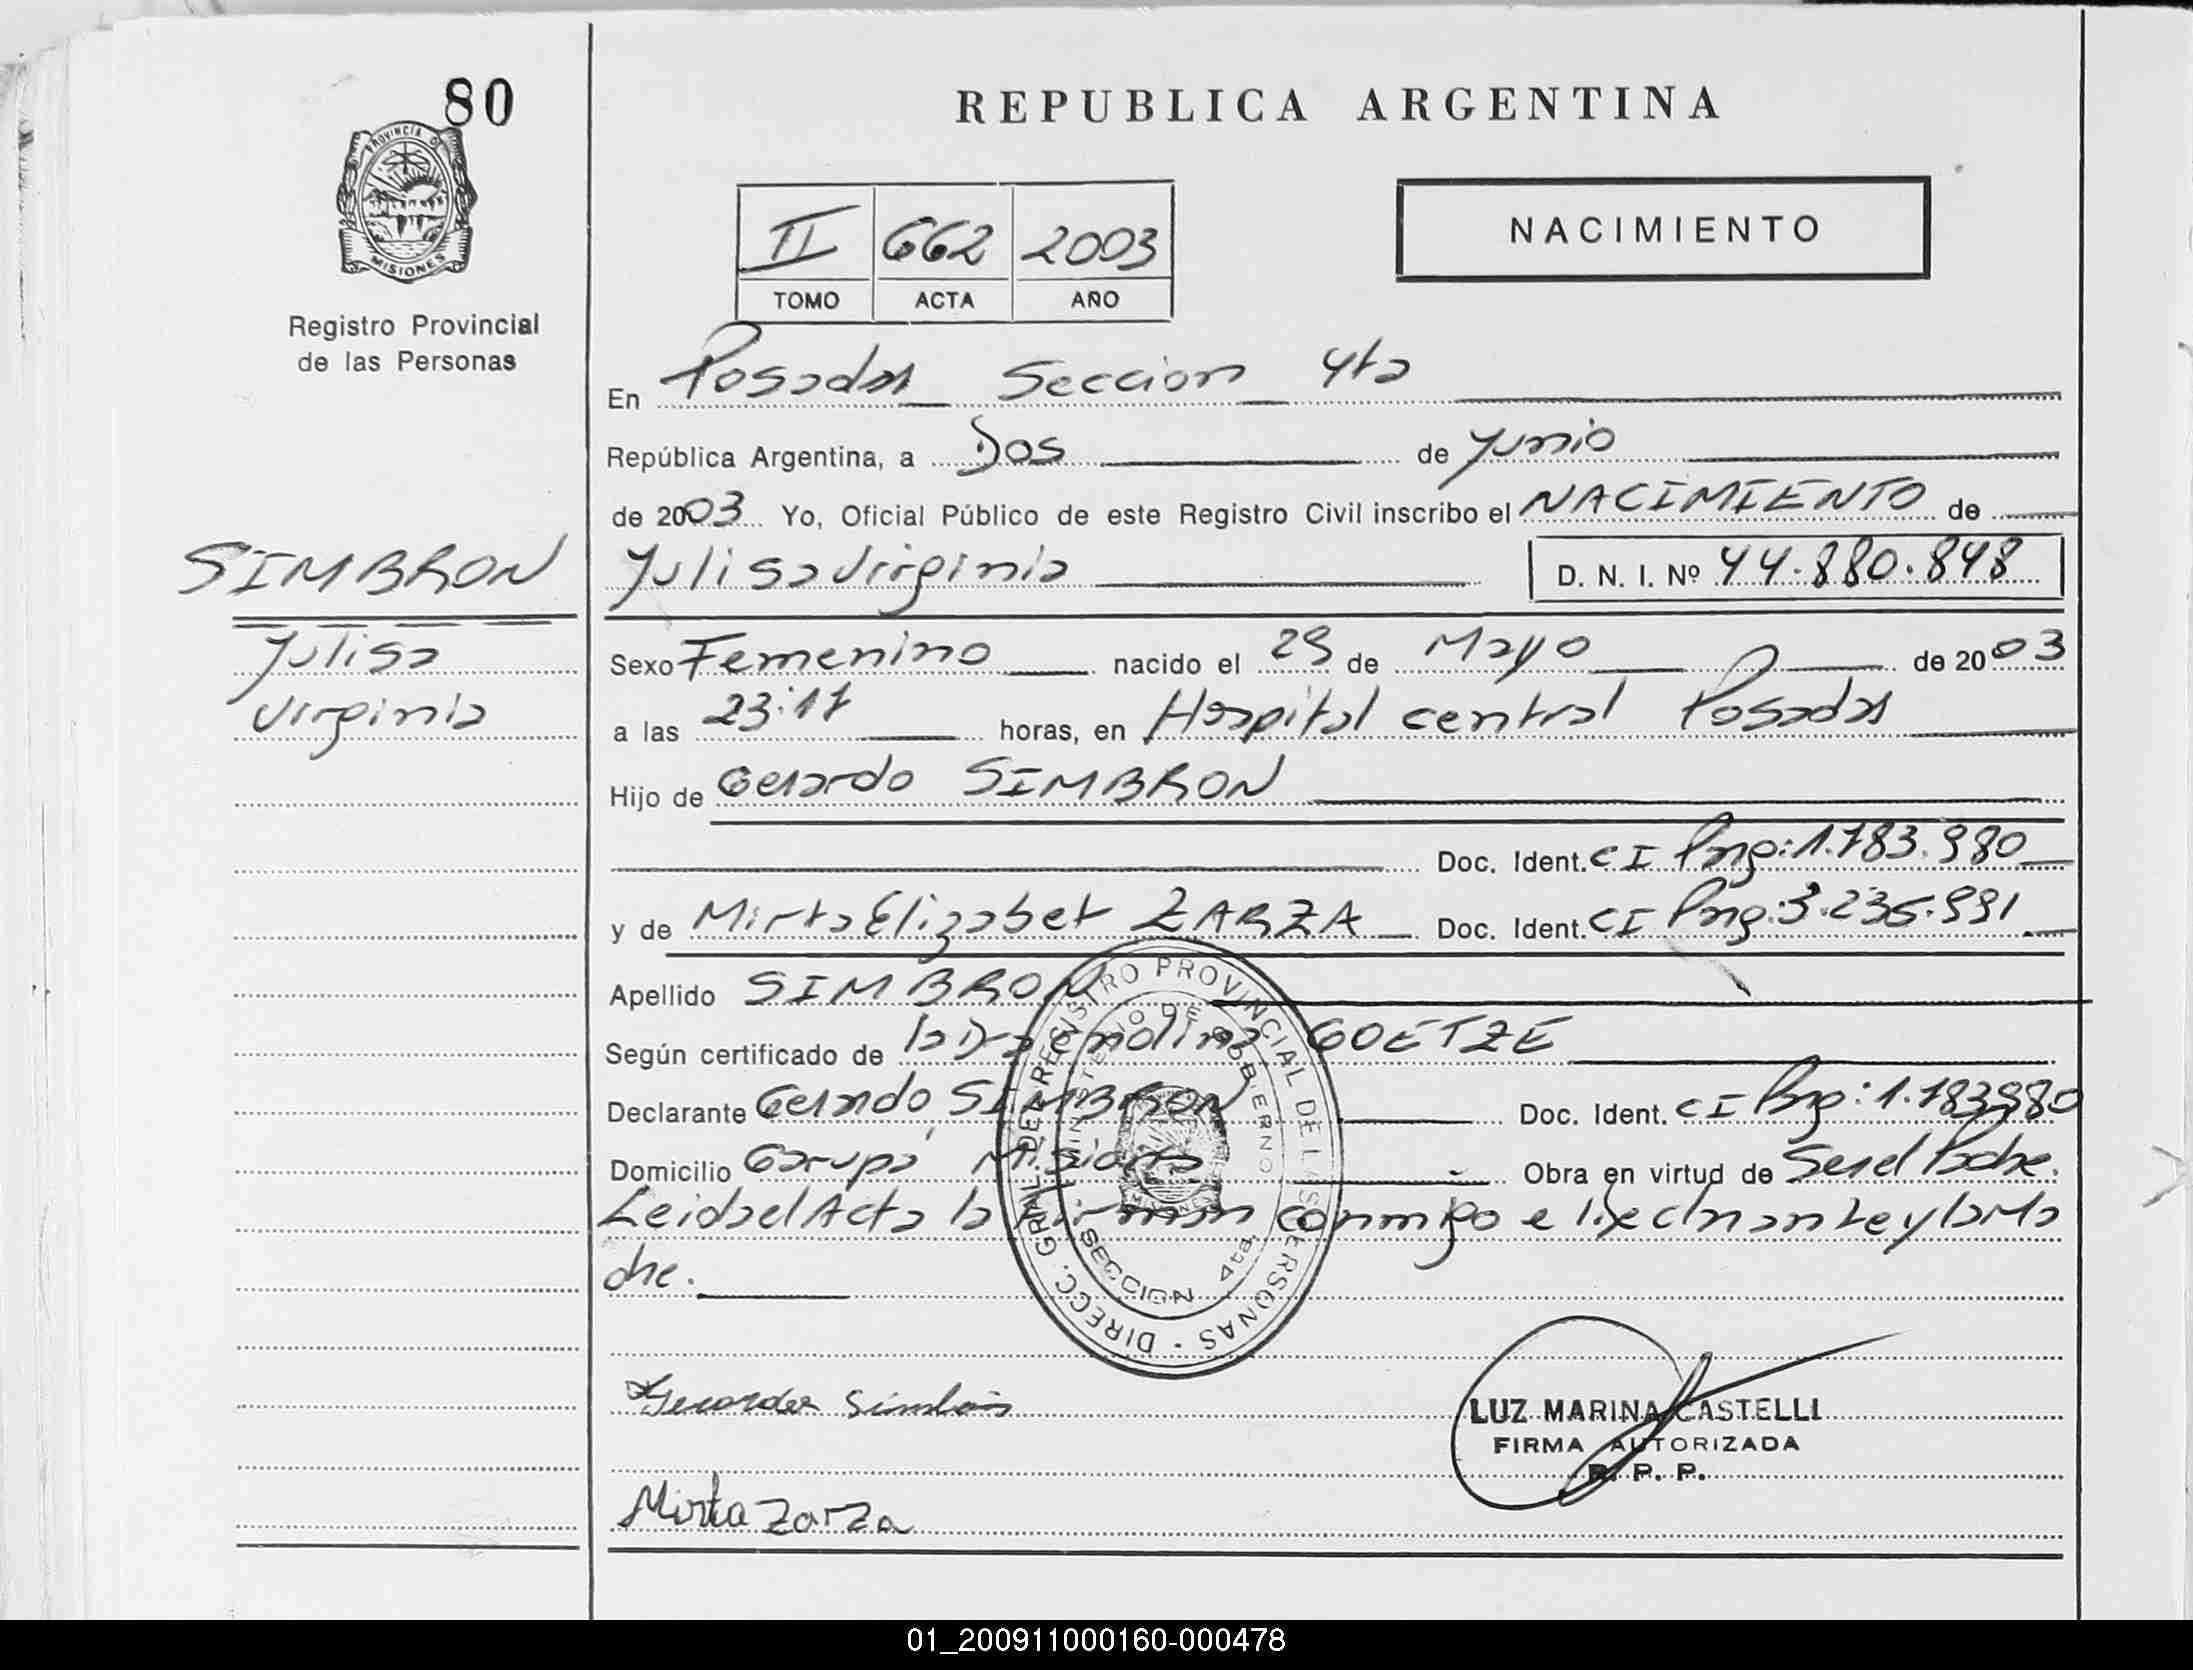 80
PROVINCIA DE
MISIONES
Registro Provincial
de las Personas
REPUBLICA ARGENTINA
II 662 2003
TOMO ACTA AÑO
NACIMIENTO
En Posadas Seccion 4ta
República Argentina, a Dos de Junio
de 2003 Yo, Oficial Público de este Registro Civil inscribo el NACIMIENTO de
SIMBRON
Julisa Virginia
D. N. I. Nº 44.880.848
Julisa
Virginia
Sexo Femenino nacido el 29 de Mayo de 2003
a las 23:17 horas, en Hospital central Posadas
Hijo de Gerardo SIMBRON
Doc. Ident. CI Prog: 1.783.980
y de Mirta Elizabet ZARZA Doc. Ident. CI Prog: 3.236.991
Apellido SIMBRON
Según certificado de la Dra GOETZE
Declarante Gerardo SIMBRON Doc. Ident. CI Prog: 1.783980
Domicilio Garupá Misiones Obra en virtud de Ser el Padre.
Leida el Acta la firman conmigo el declarante y la Ma
dre.
DIRECC. GRAL. DEL REGISTRO PROVINCIAL DE LAS PERSONAS
MINISTERIO DE GOBIERNO
SECCION 4ta.
Gerardo Simbron
LUZ MARINA CASTELLI
FIRMA AUTORIZADA
R. P. P.
Mirta Zarza
01_200911000160-000478